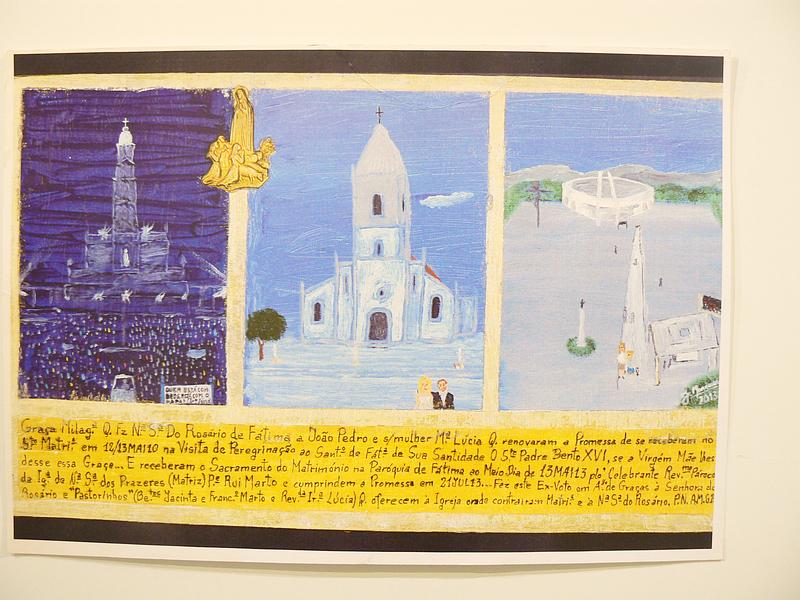 QUEM ESTÁ COM
DEUS ESTÁ COM O
PAPA
2013
Graça Milag.ª Q. Fz Nª Sª Do Rosário de Fátima a João Pedro e s/mulher Mª Lúcia Q. renovaram a Promessa de se receberam no
Stº Matriº em 12/13MAI10 na Visita de Peregrinação ao Santº de Fátª de Sua Santidade O Stº Padre Bento XVI, se a Virgém Mãe lhes
desse essa Graça... E receberam o Sacramento do Matrimónio na Paróquia de Fátima ao Meio Dia de 13MAI13 plo' Celebrante Rev.mo Pároco
da Igª da Nª Sª dos Prazeres (Matriz) Pe Rui Marto e cumprindem a Promessa em 21JUL13... Fez este Ex-Voto em Aªº de Graças à Senhora do
Rosário e "Pastorinhos" (Betos Jacinta e Franc.º Marto e Rev.da Ir.ª Lúcia) Q. oferecem à Igreja onde contrairam Matriº e a Nª Sª do Rosário. P.N. A.M.G.